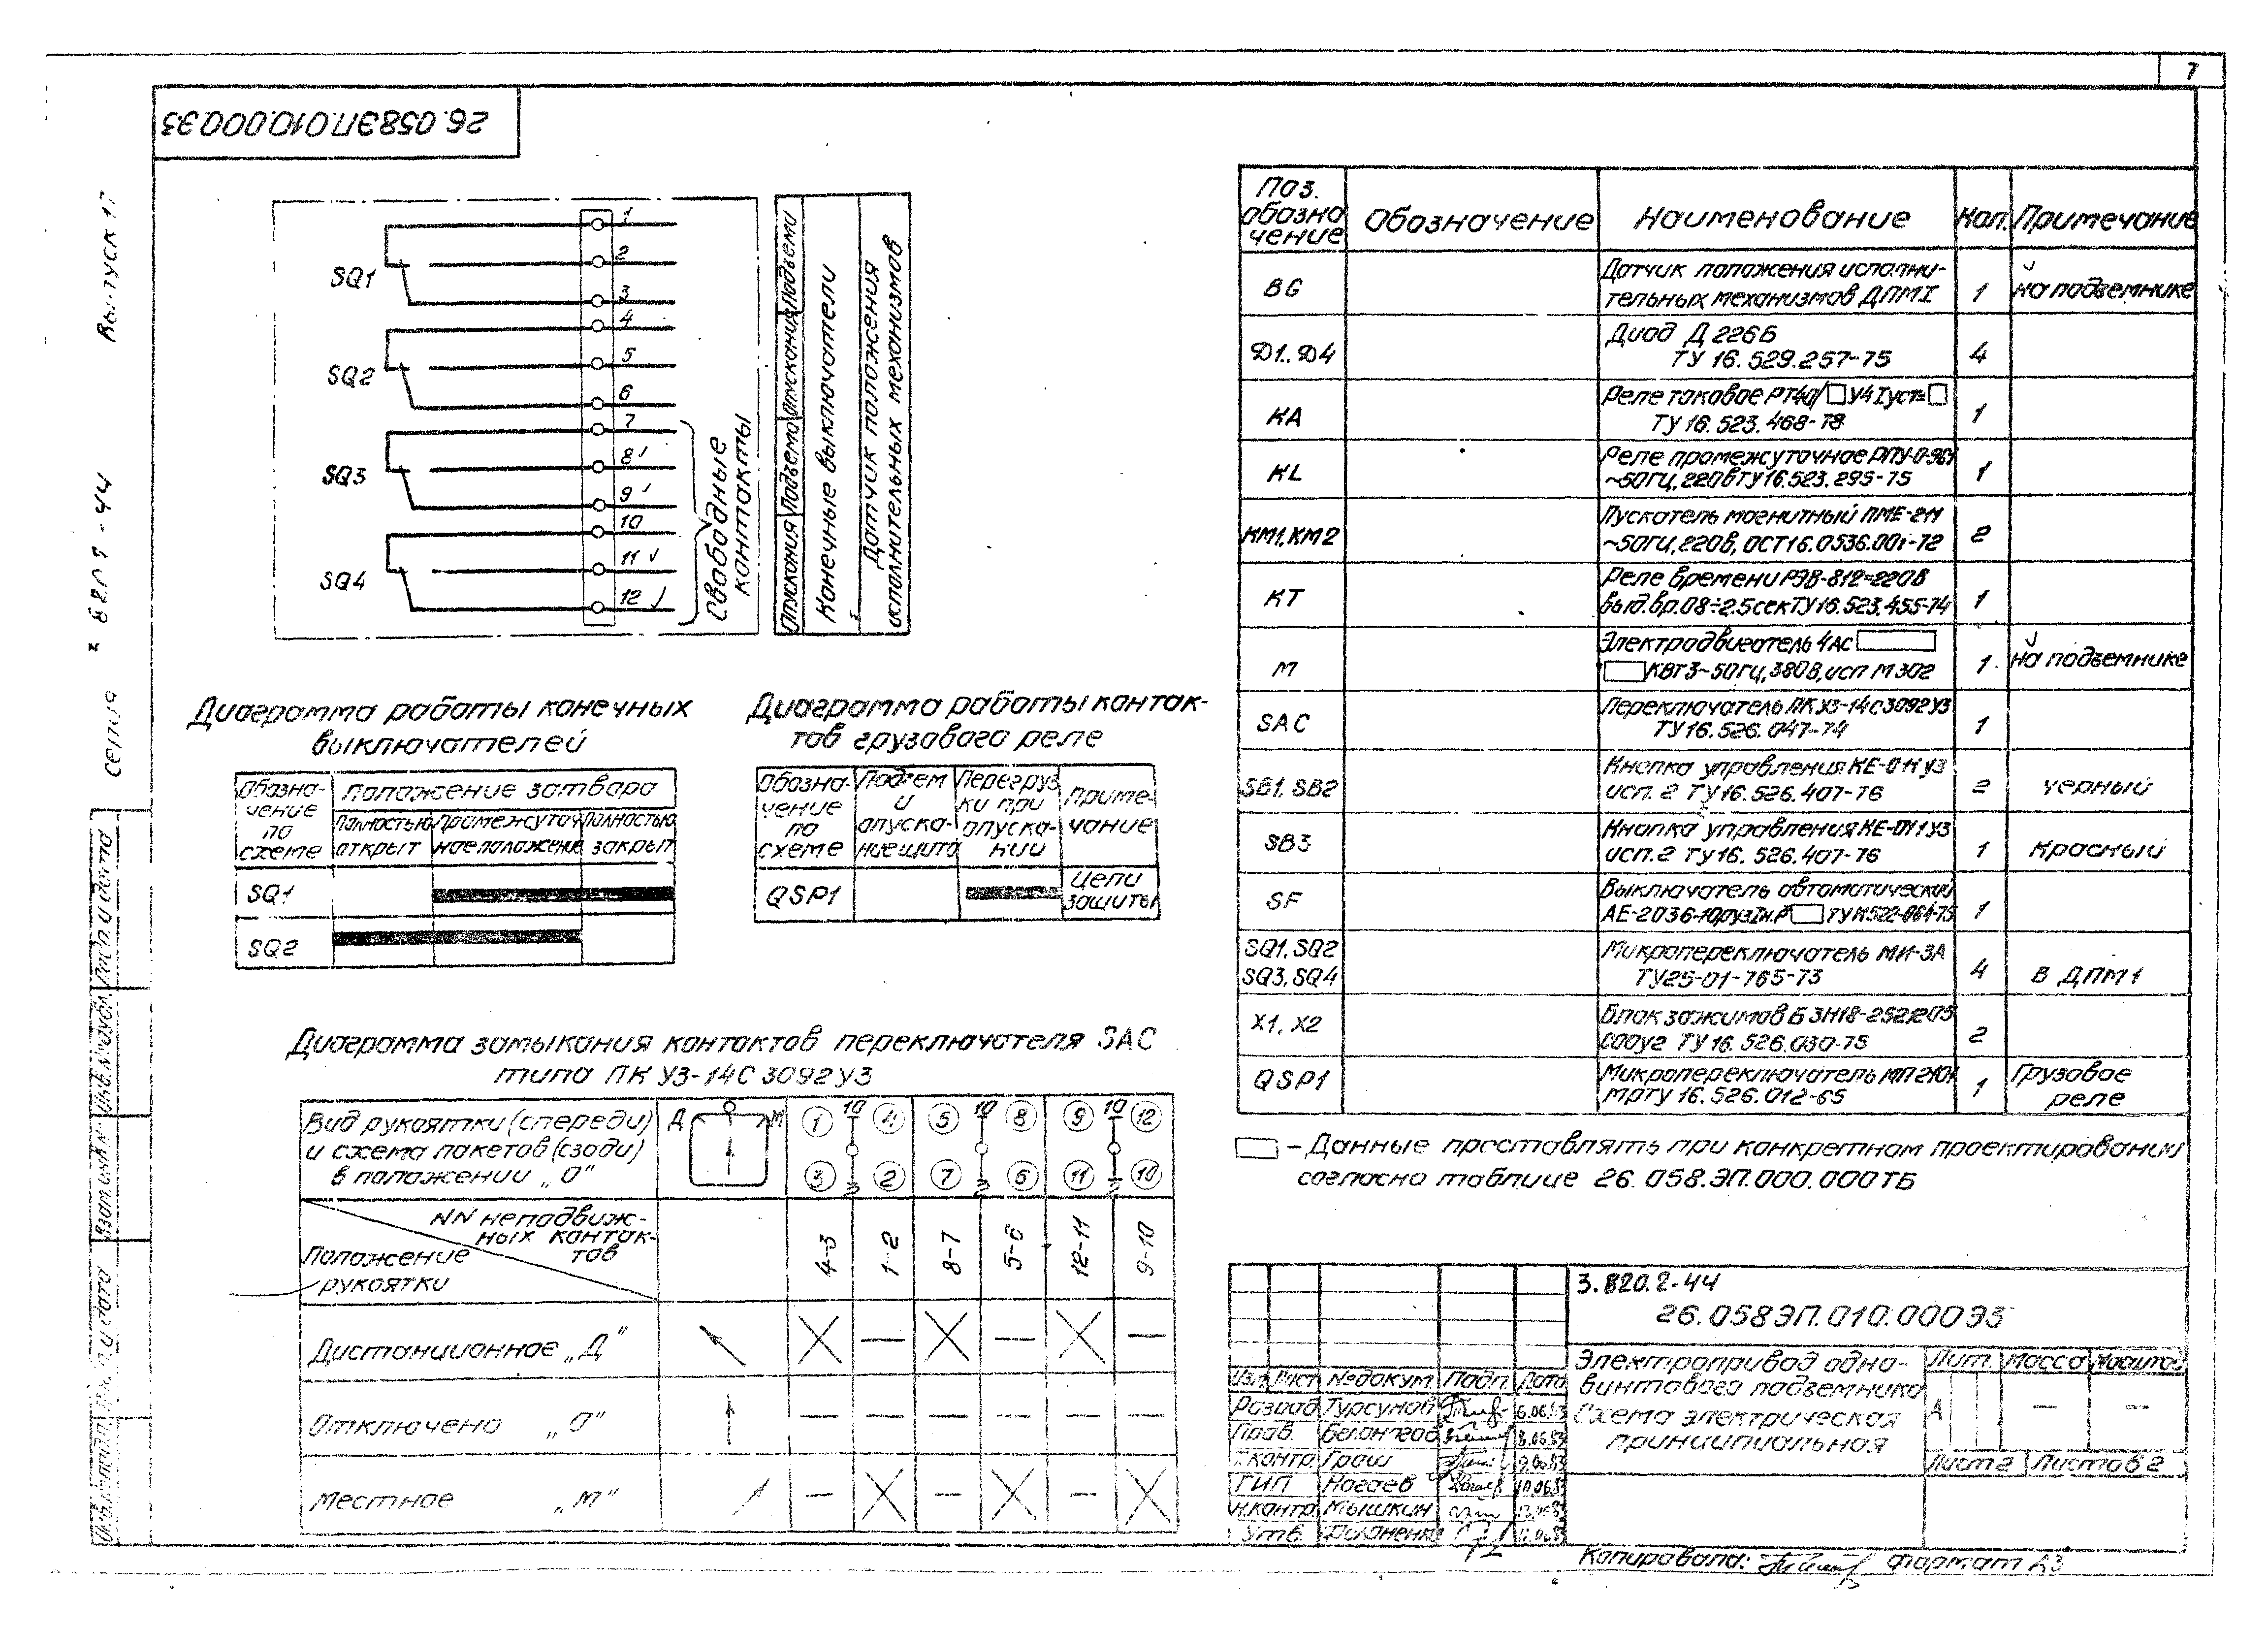 7
26.058ЭП.010.000Э3
Выпуск 1
серия
SQ1
SQ2
SQ3
SQ4
1
2
3
4
5
6
7
8
9
10
11
12
Свободные
контакты
Опускания
Подъема
Опускания
Подъема
Конечные выключатели
Датчик положения
исполнительных механизмов
Диаграмма работы конечных
выключателей
Обозна-
чение
по
схеме
Положение затвора
Полностью
открыт
Промежуточ
ное положение
Полностью
закрыт
SQ1
SQ2
Диаграмма работы контак-
тов грузового реле
Обозна-
чение
по
схеме
Подъем
и
опуска-
ние щита
Перегруз
ки при
опуска-
нии
Приме-
чание
QSP1
Цепи
защиты
Диаграмма замыкания контактов переключателя SAC
типа ПК У3-14С 3092У3
Вид рукоятки (спереди)
и схема пакетов (сзади)
в положении „О"
Д О М
1 10 4 5 10 8 9 10 12
3 2 7 6 11 10
NN неподвиж-
ных контак-
тов
Положение
рукоятки
4-3
1-2
8-7
5-6
12-11
9-10
Дистанционное „Д"
Отключено „О"
Местное „М"
Поз.
обозна
чение
Обозначение
Наименование
Кол.
Примечание
BG
Датчик положения исполни-
тельных механизмов ДПМ1
1
на подъемнике
Д1..Д4
Диод Д226Б
ТУ 16.529.257-75
4
KA
Реле токовое РТ40/ У4 Iуст=
ТУ 16.523.468-78
1
KL
Реле промежуточное РПУ-0-961
~50Гц, 220В ТУ16.523.295-75
1
KM1, KM2
Пускатель магнитный ПМЕ-211
~50Гц, 220В, ОСТ16.0536.001-72
2
KT
Реле времени РЭВ-812=220В
Выд.вр.08÷2.5сек ТУ16.523.455-74
1
M
Электродвигатель 4АС
кВт 3~50Гц, 380В, исп М302
1
на подъемнике
SAC
Переключатель ПК У3-14С3092У3
ТУ16.526.047-74
1
SB1, SB2
Кнопка управления КЕ-011 У3
исп. 2 ТУ16.526.407-76
2
черный
SB3
Кнопка управления КЕ-011 У3
исп. 2 ТУ 16.526.407-76
1
красный
SF
Выключатель автоматический
АЕ-2036-10РУ3 Iн.р ТУ16.522-064-75
1
SQ1, SQ2
SQ3, SQ4
Микропереключатель МИ-3А
ТУ25-01-765-73
4
В ДПМ1
X1, X2
Блок зажимов
ТУ 16.526.030-75
2
QSP1
Микропереключатель МП 2101
МРТУ 16.526.012-65
1
Грузовое
реле
– Данные проставлять при конкретном проектировании
согласно таблице 26.058.ЭП.000.000ТБ
3.820.2-44
26.058ЭП.010.000Э3
Изм Лист №докум Подп. Дата
Разраб Турсунов
Пров.
Т.контр. Граш
ГИП Нагаев
Н.контр. Мышкин
Утв.
Электропривод одно-
винтового подъемника
Схема электрическая
принципиальная
Лит. Масса Масштаб
А – –
Лист 2 Листов 2
Копировала: Формат А3
Подп. и дата
Инв.№ дубл.
Взам инв.№
Подп. и дата
Инв.№ подл.